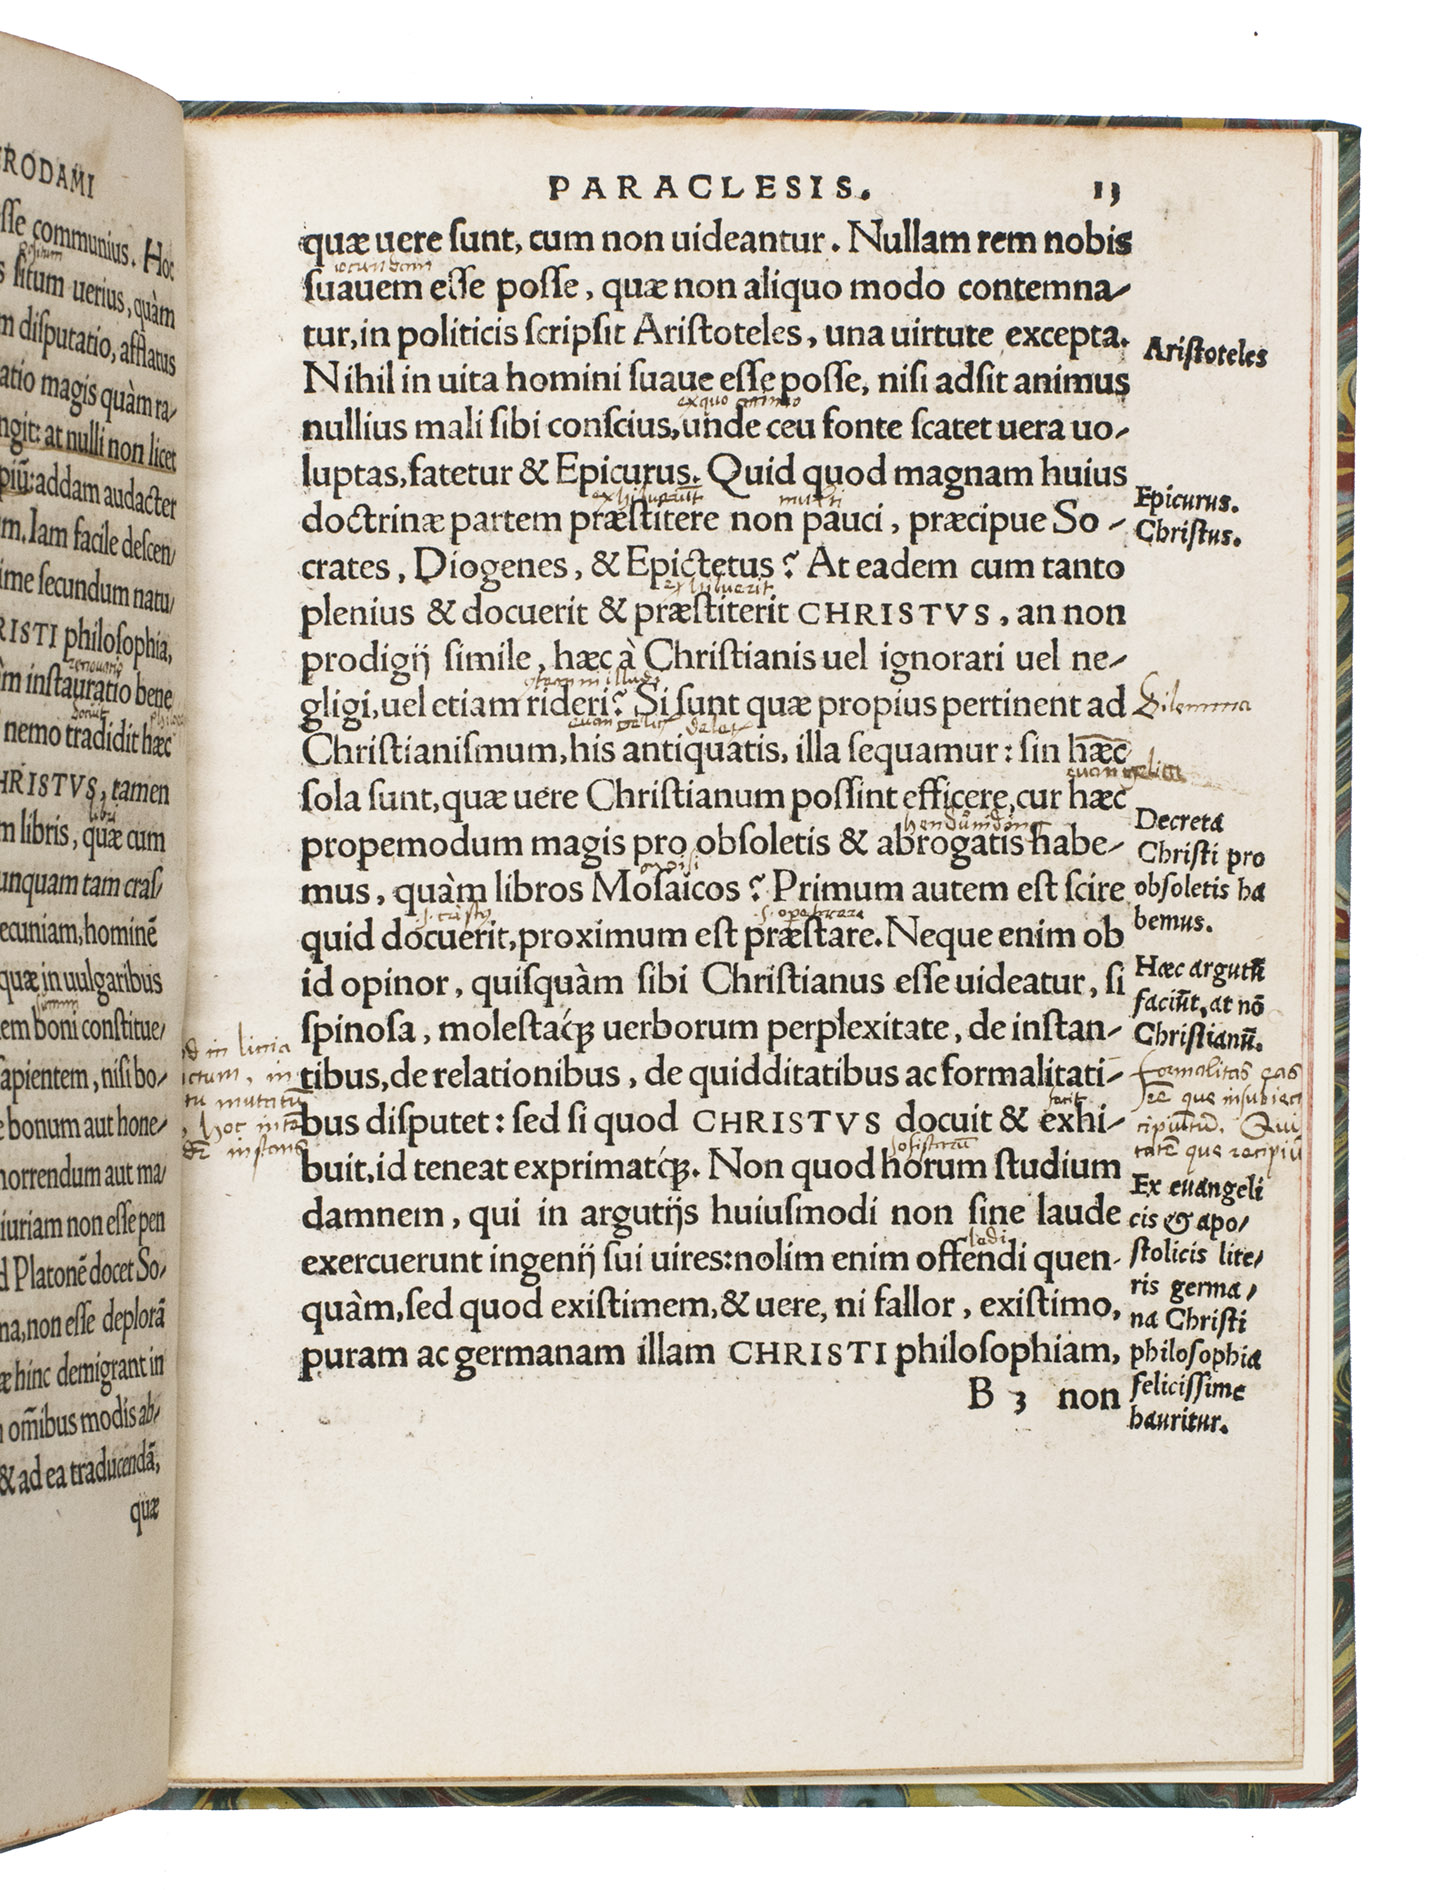 RODAMI
sse communius. Hoc
situm uerius, quàm
m disputatio, afflatus
atio magis quàm ra⸗
ngit: at nulli non licet
piū: addam audacter
m. Iam facile descen⸗
ime secundum natu⸗
RISTI philosophia,
renouatio
m instauratio bene
nemo tradidit hæc
HRISTVS, tamen
libri
m libris, quæ cum
unquam tam cras⸗
ecuniam, hominē
quæ in uulgaribus
em boni constitue⸗
sapientem, nisi bo⸗
e bonum aut hone⸗
horrendum aut ma⸗
iuriam non esse pen
d Platonē docet So⸗
na, non esse deplorā
æ hinc demigrant in
omībus modis ab⸗
& ad ea traducendā,
quæ
PARACLESIS. 13
quæ uere sunt, cum non uideantur. Nullam rem nobis
iocundam
suauem esse posse, quæ non aliquo modo contemna⸗
tur, in politicis scripsit Aristoteles, una uirtute excepta.
Aristoteles
Nihil in uita homini suaue esse posse, nisi adsit animus
ex quo animo
nullius mali sibi conscius, unde ceu fonte scatet uera uo⸗
luptas, fatetur & Epicurus. Quid quod magnam huius
Epicurus.
exhibuerūt multi
doctrinæ partem præstitere non pauci, præcipue So⸗
Christus.
crates, Diogenes, & Epictetus? At eadem cum tanto
exhibuerit
plenius & docuerit & præstiterit CHRISTVS, an non
prodigij simile, hæc à Christianis uel ignorari uel ne⸗
gligi, uel etiam rideri? Si sunt quæ propius pertinent ad
Dilemma
Christianismum, his antiquatis, illa sequamur: sin hæc
sola sunt, quæ uere Christianum possint efficere, cur hæc
propemodum magis pro obsoletis & abrogatis habe⸗
Decreta
Christi pro
obsoletis ha
bemus.
mus, quàm libros Mosaicos? Primum autem est scire
quid docuerit, proximum est præstare. Neque enim ob
id opinor, quisquàm sibi Christianus esse uideatur, si
Hæc argutū
faciūt, at nō
Christianū.
spinosa, molestaq́; uerborum perplexitate, de instan⸗
tibus, de relationibus, de quidditatibus ac formalitati⸗
in linia
mutatū
hoc
instans
Formalitas eas
que in subiect
que recipiū
facit
bus disputet: sed si quod CHRISTVS docuit & exhi⸗
sophistarū
buit, id teneat exprimatq́;. Non quod horum studium
damnem, qui in argutijs huiusmodi non sine laude
ledi
exercuerunt ingenij sui uires: nolim enim offendi quen⸗
quàm, sed quod existimem, & uere, ni fallor, existimo,
puram ac germanam illam CHRISTI philosophiam,
Ex euangeli
cis & apo⸗
stolicis lite⸗
ris germa⸗
na Christi
philosophia
felicissime
hauritur.
B 3 non